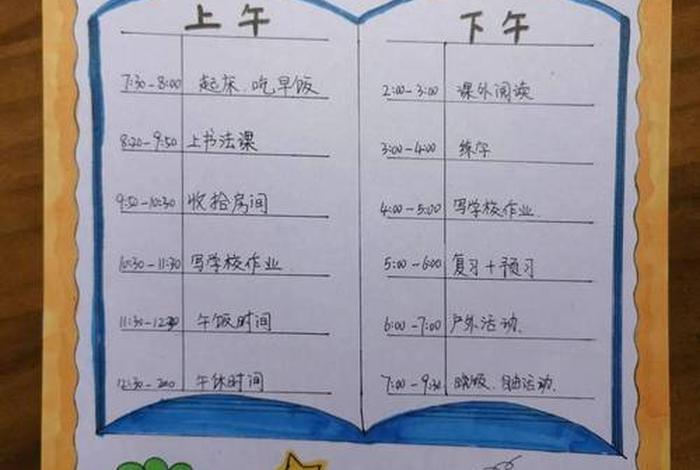 上午
7:30-8:00 起床、吃早饭
8:20-9:50 上书法课
9:50-10:30 收拾房间
10:30-11:30 写学校作业
11:30-12:30 午饭时间
12:30-2:00 午休时间
下午
2:00-3:00 课外阅读
3:00-4:00 练字
4:00-5:00 写学校作业.
5:00-6:00 复习+预习
6:00-7:00 户外活动.
7:00-9:30 晚饭、自由活动.